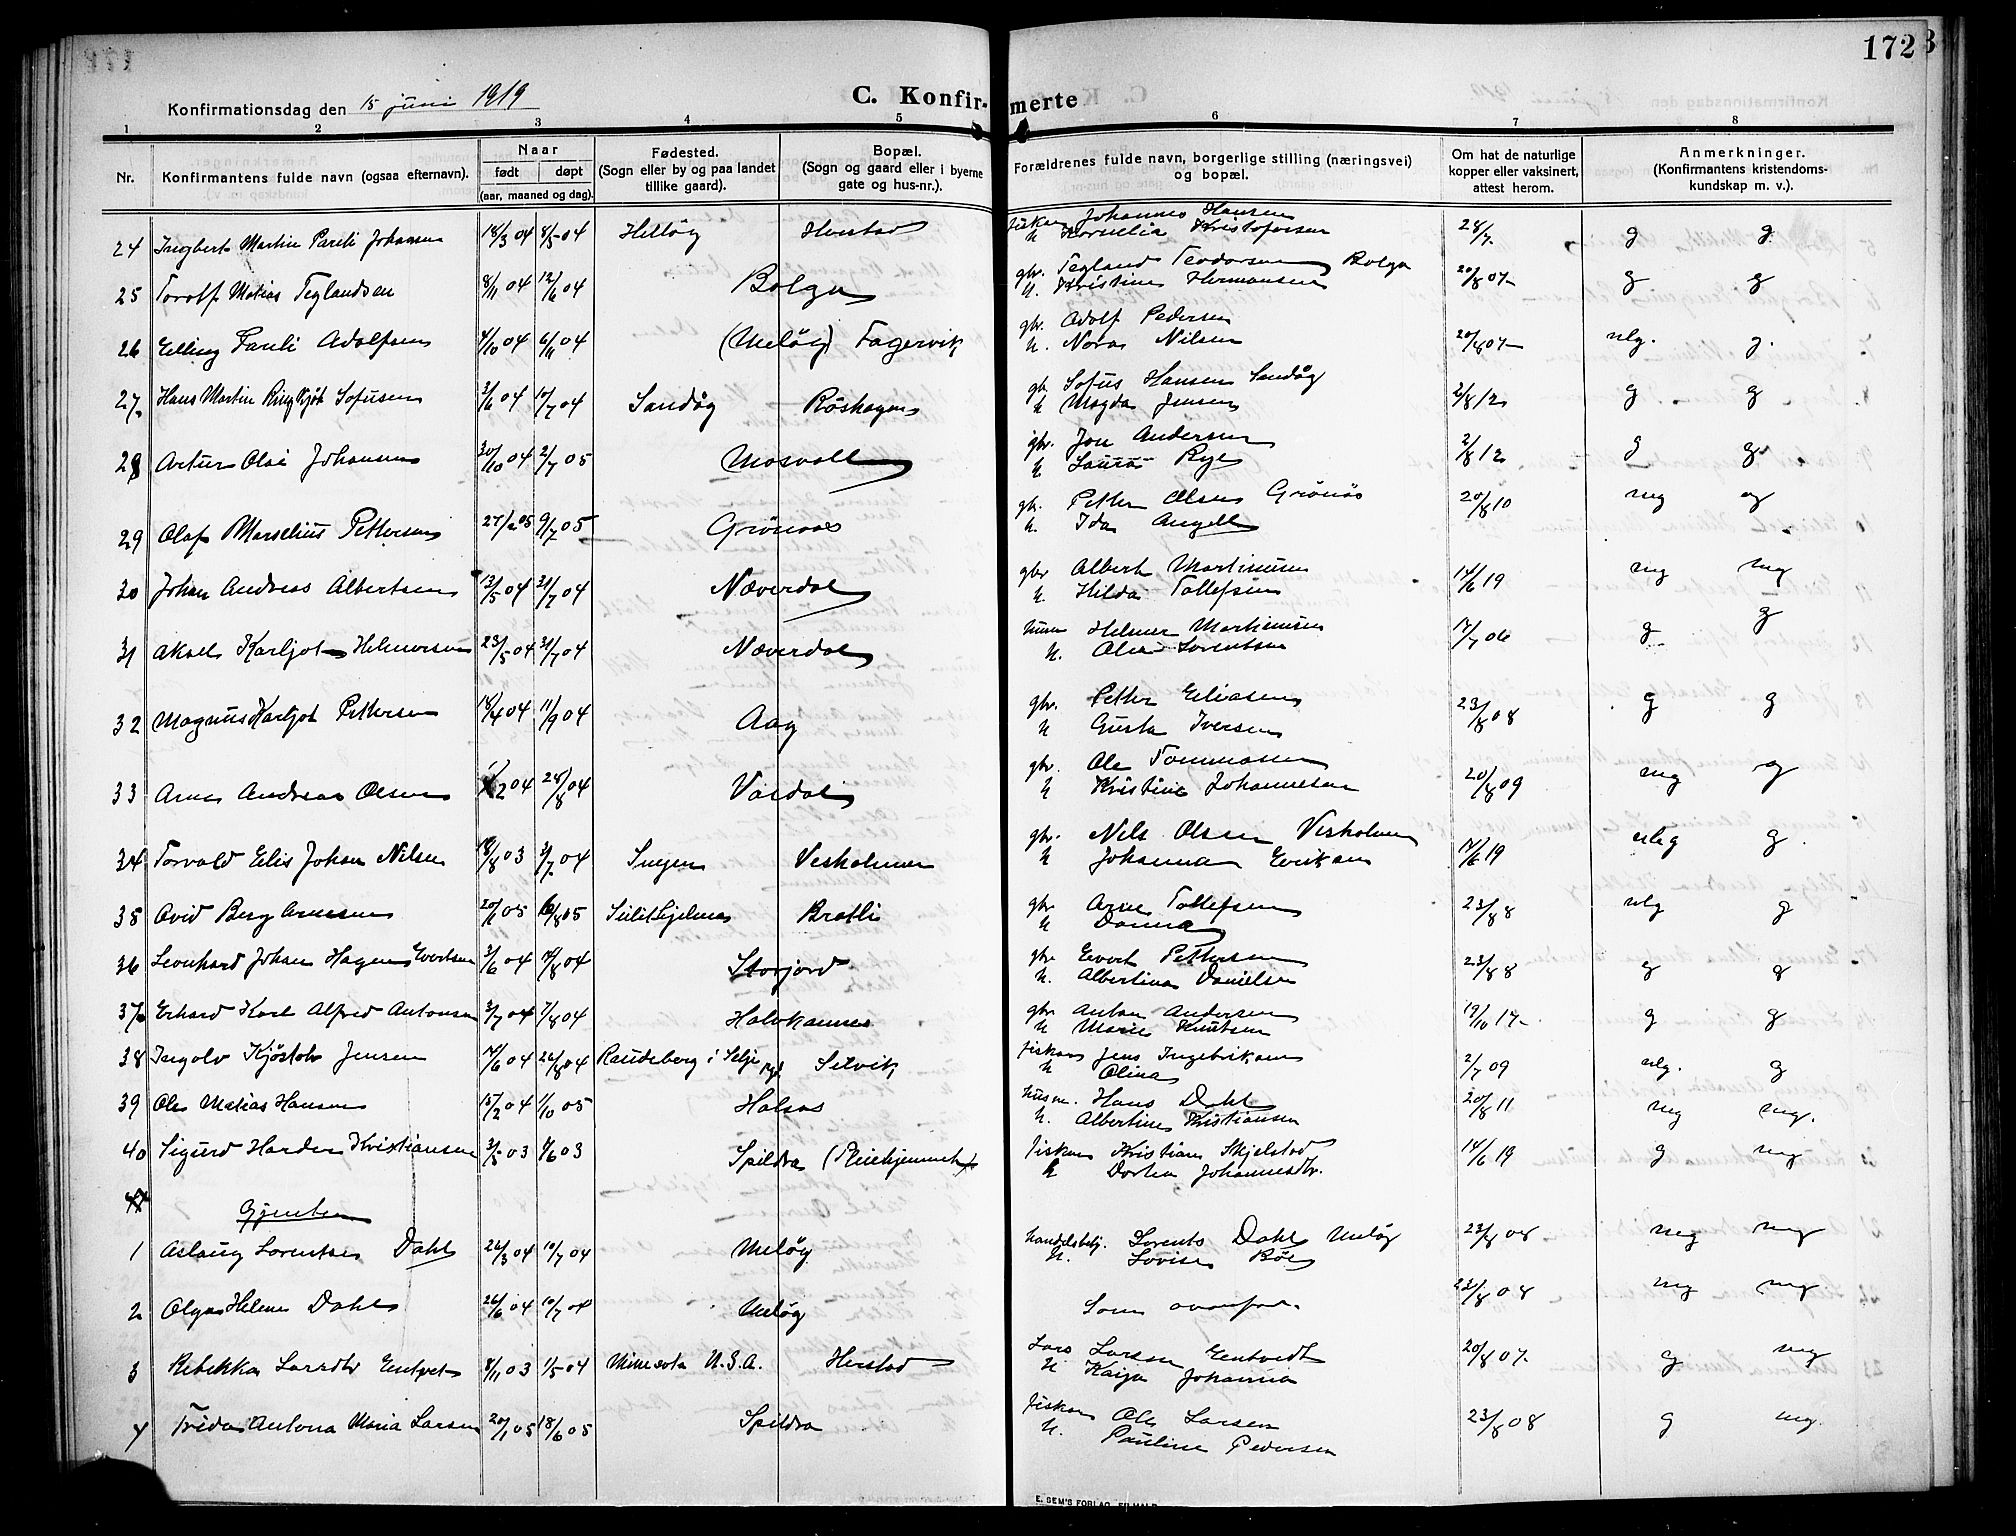 172
Konfirmationsdag den 15 juni 1919
C. Konfir- merte
1 2 3 4 5 6 7 8
Nr. Konfirmantens fulde navn (ogsaa efternavn). Naar født døpt (aar, maaned og dag). Fødested. (Sogn eller by og paa landet tillike gaard). Bopæl. (Sogn og gaard eller i byerne gate og hus-nr.). Forældrenes fulde navn, borgerlige stilling (næringsvei) og bopæl. Om hat de naturlige kopper eller vaksinert, attest herom. Anmerkninger. (Konfirmantens kristendoms- kundskap m. v.).
24 Ingbert Martin Pareli Johansen 18/3 04 8/5 04 Helløg Herstad fiskar Johannes Hansen
h Kornelia Kristofersen 28/7 g g
25 Torolf Matias Teglandsen 8/11 04 12/6 04 Bolga gbr. Tegland Teodorsen Bolga
h. Kristine Hermansen 20/8 07 g g
26 Elling Pareli Adolfsen 4/10 04 6/11 04 (Meløy) Fagervik gbr. Adolf Pedersen
h. Nora Nilsen 20/8 07 ulg. g.
27 Hans Martin Ring Kjøt Sofusen 3/6 04 10/7 04 Sandøg Røshagen gbr Sofus Hansen Sandøg
h Magda Jensen 2/8 12 g g
28 Artur Olai Johansen 30/10 04 2/7 05 Mosvoll gbr. Jon Andersen
h Laura Rye 2/8 12 g g
29 Olaf Marselius Pettersen 27/2 05 9/7 05 Grönaas gbr. Petter Olsen Grönös
h. Ida Angell 20/8 10 mg g
30 Johan Andreas Albertsen 13/5 04 31/7 04 Næverdal gbr Albert Martinusen
h. Hilda Tollefsen 14/6 19 mg mg
31 Aksel Karljot Helmersen 23/5 04 31/7 04 Næverdal husm Helmer Martinusen
h. Olea Lorentsen 17/7 06 g g
32 Magnus Karljot Pettersen 18/4 04 11/9 04 Aag gbr. Petter Eliasen
h Gusta Iversen 23/8 08 g g
33 Arne Andreas Olsen 1/2 04 28/8 04 Vardal gbr. Ole Tommasen
h Kristine Johannesen 20/8 09 mg g
34 Torvald Elis Johan Nilsen 18/8 03 3/7 04 Engen Vesholmen gbr. Nils Olsen Vesholmen
h Johanna Eriksen 14/6 19 ulg g
35 Ovid Berg Arnesen 20/1 05 6/8 05 Sulitjelma Bratli gbr Arne Tollefsen
h Danna 23/8 8 ulg g
36 Leonhard Johan Hagen Evertsen 3/6 04 14/8 04 Storjord gbr Evert Pettersen
h. Albertina Danielsen 23/8 8 g g
37 Erhard Karl Alfred Antonsen 3/7 04 7/8 04 Halvkannes gbr Anton Andersen
h Marie Knutsen 19/10 17 g g
38 Ingolv Kjöstolv Jensen 14/6 04 26/8 04 Raudeberg i Selje Selvik fiskar Jens Ingebriksen
h Olina 2/7 09 ulg. g
39 Ole Matias Hansen 15/2 04 1/10 05 Halsos husm. Hans Dahl
h. Albertine Kristiansen 20/8 11 mg mg.
40 Sigurd Harder Kristiansen 3/5 03 7/6 03 Spildra (Pleiehjemmet) fiskar Kristian Skjelstad
h Dortea Johannesdtr. 14/6 19 g mg
Gjenter
1 Aslaug Lorentse Dahl 26/3 04 10/7 04 Meløg handelsbetj. Lorents Dahl Meløg
h. Lovise Böe 23/8 08 mg mg
2 Olga Helene Dahl 26/6 04 10/7 04 Meløg Som ovenfor. 23/8 08 mg mg
3 Rebekka Larsdtr Entvet 8/11 03 1/5 04 Minesota U.S.A. Herstad Lars Larsen Entvedt
h Kaija Johanna 20/8 07. g mg
4 Frida Antona Maria Larsen 20/1 05 18/6 05 Spildra fiskar Ole Larsen
h. Pauline Pedersen 23/8 08 g mg.
E. SEM'S FORLAG